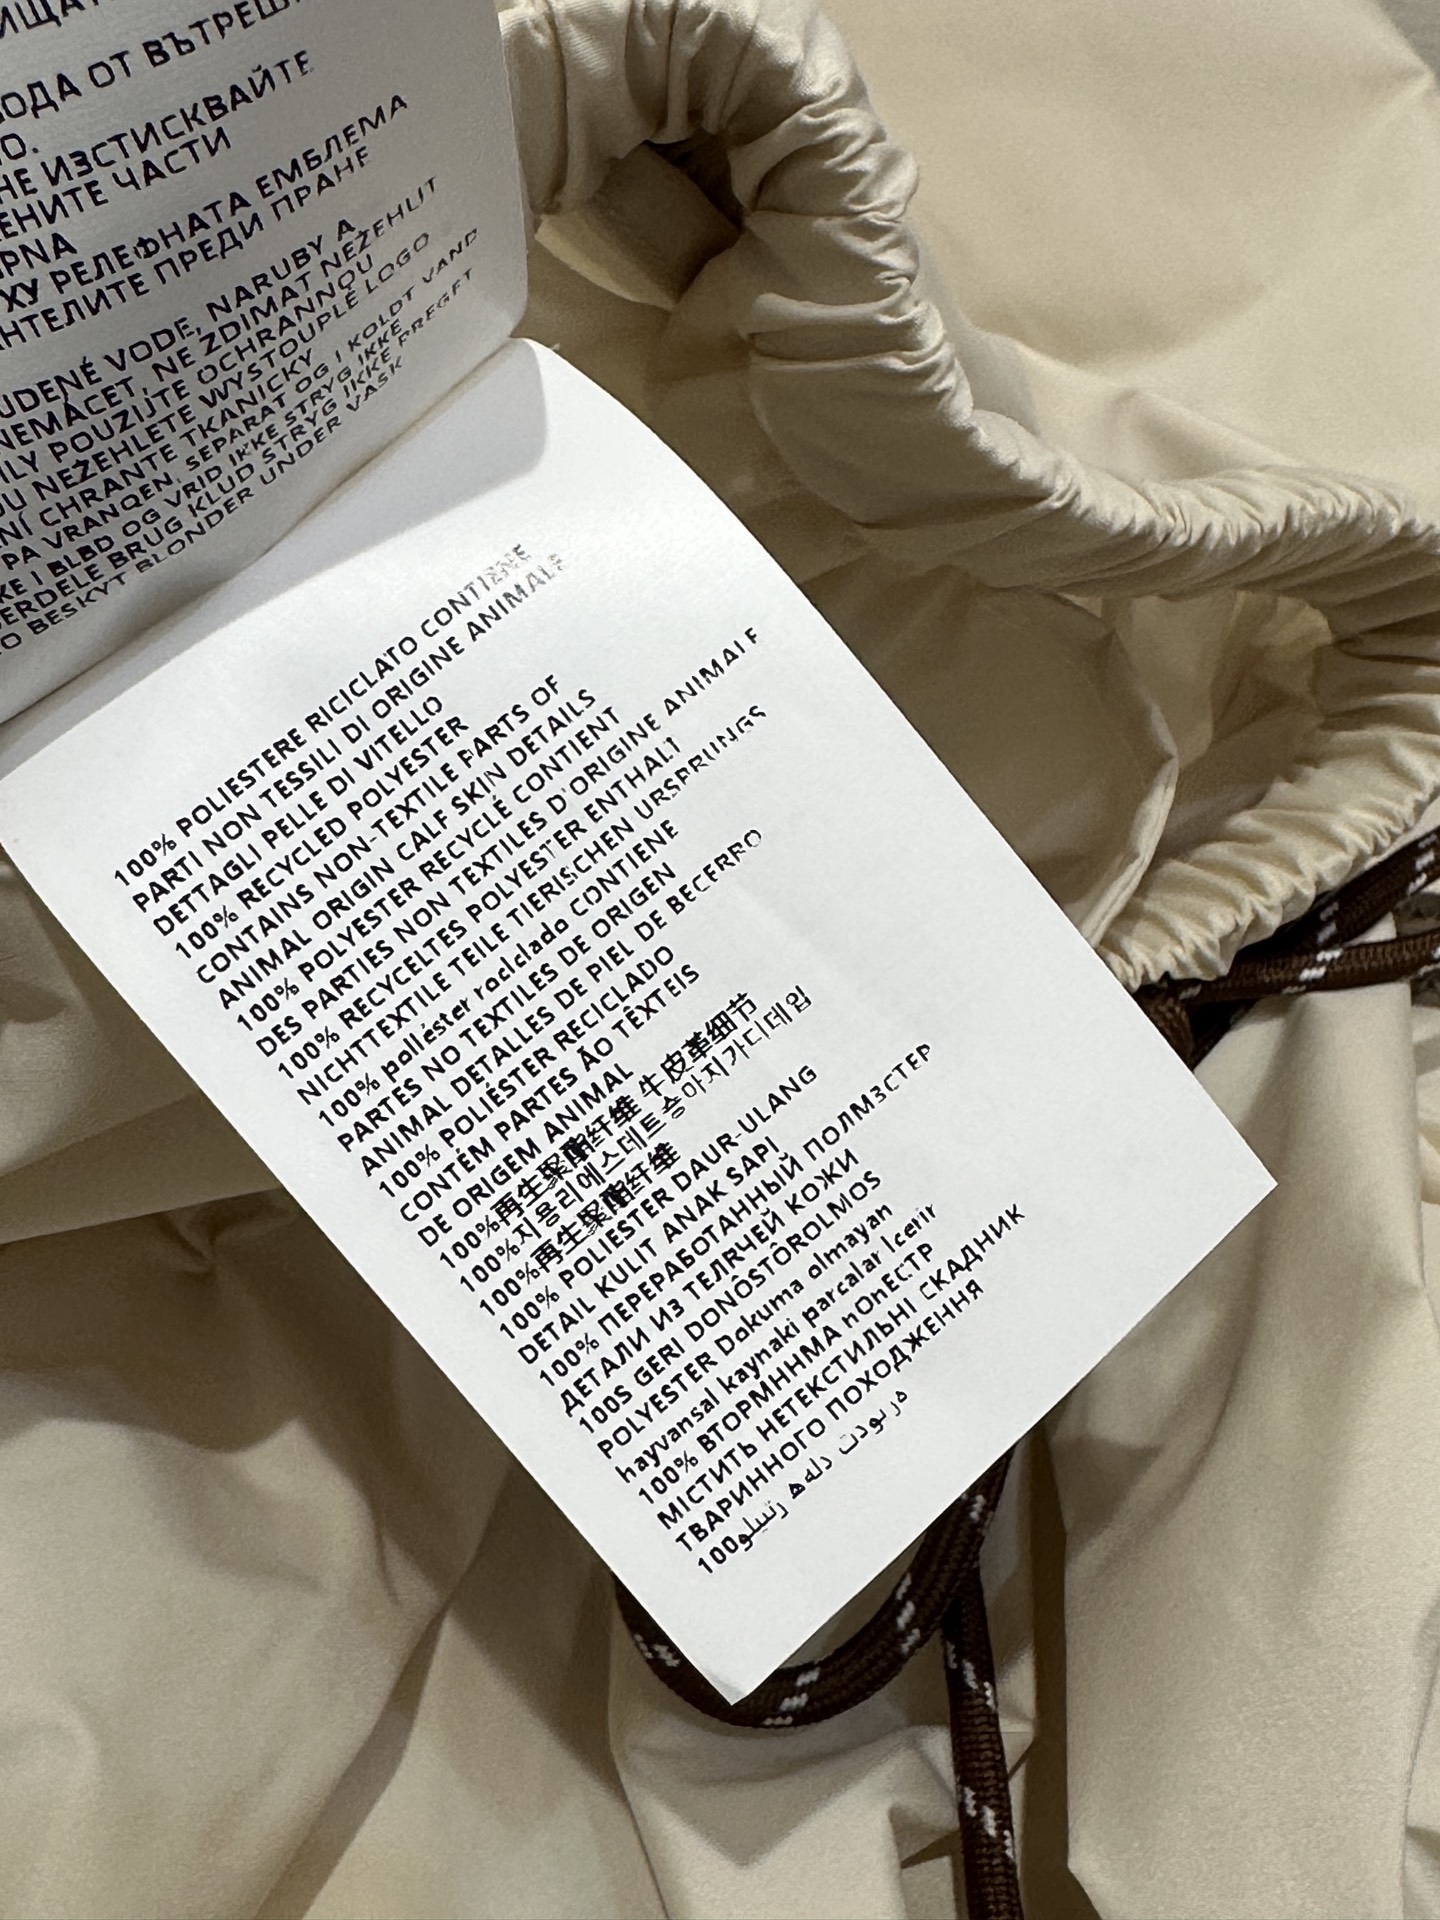 ОДА ОТ ВЪТРЕШ
О.
НЕ ИЗСТИСКВАЙТЕ
ЕНИТЕ ЧАСТИ
PNA
ХУ РЕЛЕФНАТА ЕМБЛЕМА
НТЕЛИТЕ ПРЕДИ ПРАНЕ
UDENÉ VODE, NARUBY A
NEMÁCET, NE ZDIMAT NEŽEHLIT
ILY POUZIJTE OCHRANNOU
OU NEŽEHLETE WYSTOUPLÉ LOGO
NÍ CHRANTE TKANICKY
PA VRANQEN, SEPARAT OG I KOLDT VAND
KE I BLBD OG VRID IKKE STRYG IKKE
ERDELE BRUG KLUD STRYG IKKE PREGET
O BESKYT BLONDER UNDER VASK
100% POLIESTERE RICICLATO CONTIENE
PARTI NON TESSILI DI ORIGINE ANIMALE
DETTAGLI PELLE DI VITELLO
100% RECYCLED POLYESTER
CONTAINS NON-TEXTILE PARTS OF
ANIMAL ORIGIN CALF SKIN DETAILS
100% POLYESTER RECYCLÉ CONTIENT
DES PARTIES NON TEXTILES D'ORIGINE ANIMALE
100% RECYCELTES POLYESTER ENTHALT
NICHTTEXTILE TEILE TIERISCHEN URSPRUNGS
100% poliéster roclclado CONTIENE
PARTES NO TEXTILES DE ORIGEN
ANIMAL DETALLES DE PIEL DE BECERRO
100% POLIÉSTER RECICLADO
CONTÉM PARTES ÃO TÊXTEIS
DE ORIGEM ANIMAL
100%再生聚酯纤维 牛皮革细节
100%지용리에스데트송아지가디데임
100%再生聚酯纤维
100% POLIESTER DAUR-ULANG
DETAIL KULIT ANAK SAPI
100% ПЕРЕРАБОТАННЫЙ ПОЛМЗСТЕР
ДЕТАЛИ ИЗ ТЕЛЯЧЕЙ КОЖИ
100S GERI DONÔSTÔROLMOS
POLYESTER Dokuma olmayan
hayvansal kaynaki parcalar Icerir
100% ВТОРМННМА nOnЕСТР
МІСТИТЬ НЕТЕКСТИЛЬНІ СКАДНИК
ТВАРИННОГО ПОХОДЖЕННЯ
100